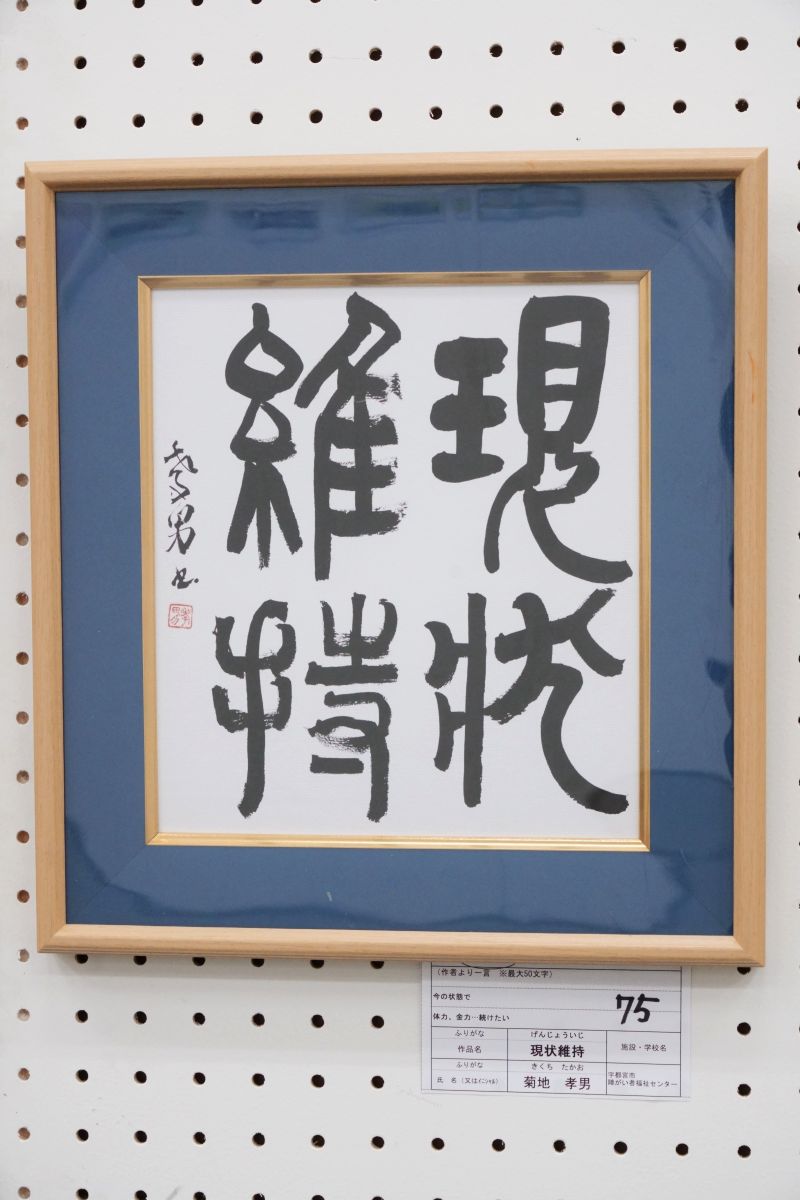 現状
維持
孝男書
孝男
(作者より一言 ※最大50文字)
今の状態で
体力、金力…続けたい
75
ふりがな げんじょういじ
作品名 現状維持 施設・学校名
ふりがな きくち たかお
氏 名(又はイニシャル) 菊地 孝男 宇都宮市
障がい者福祉センター